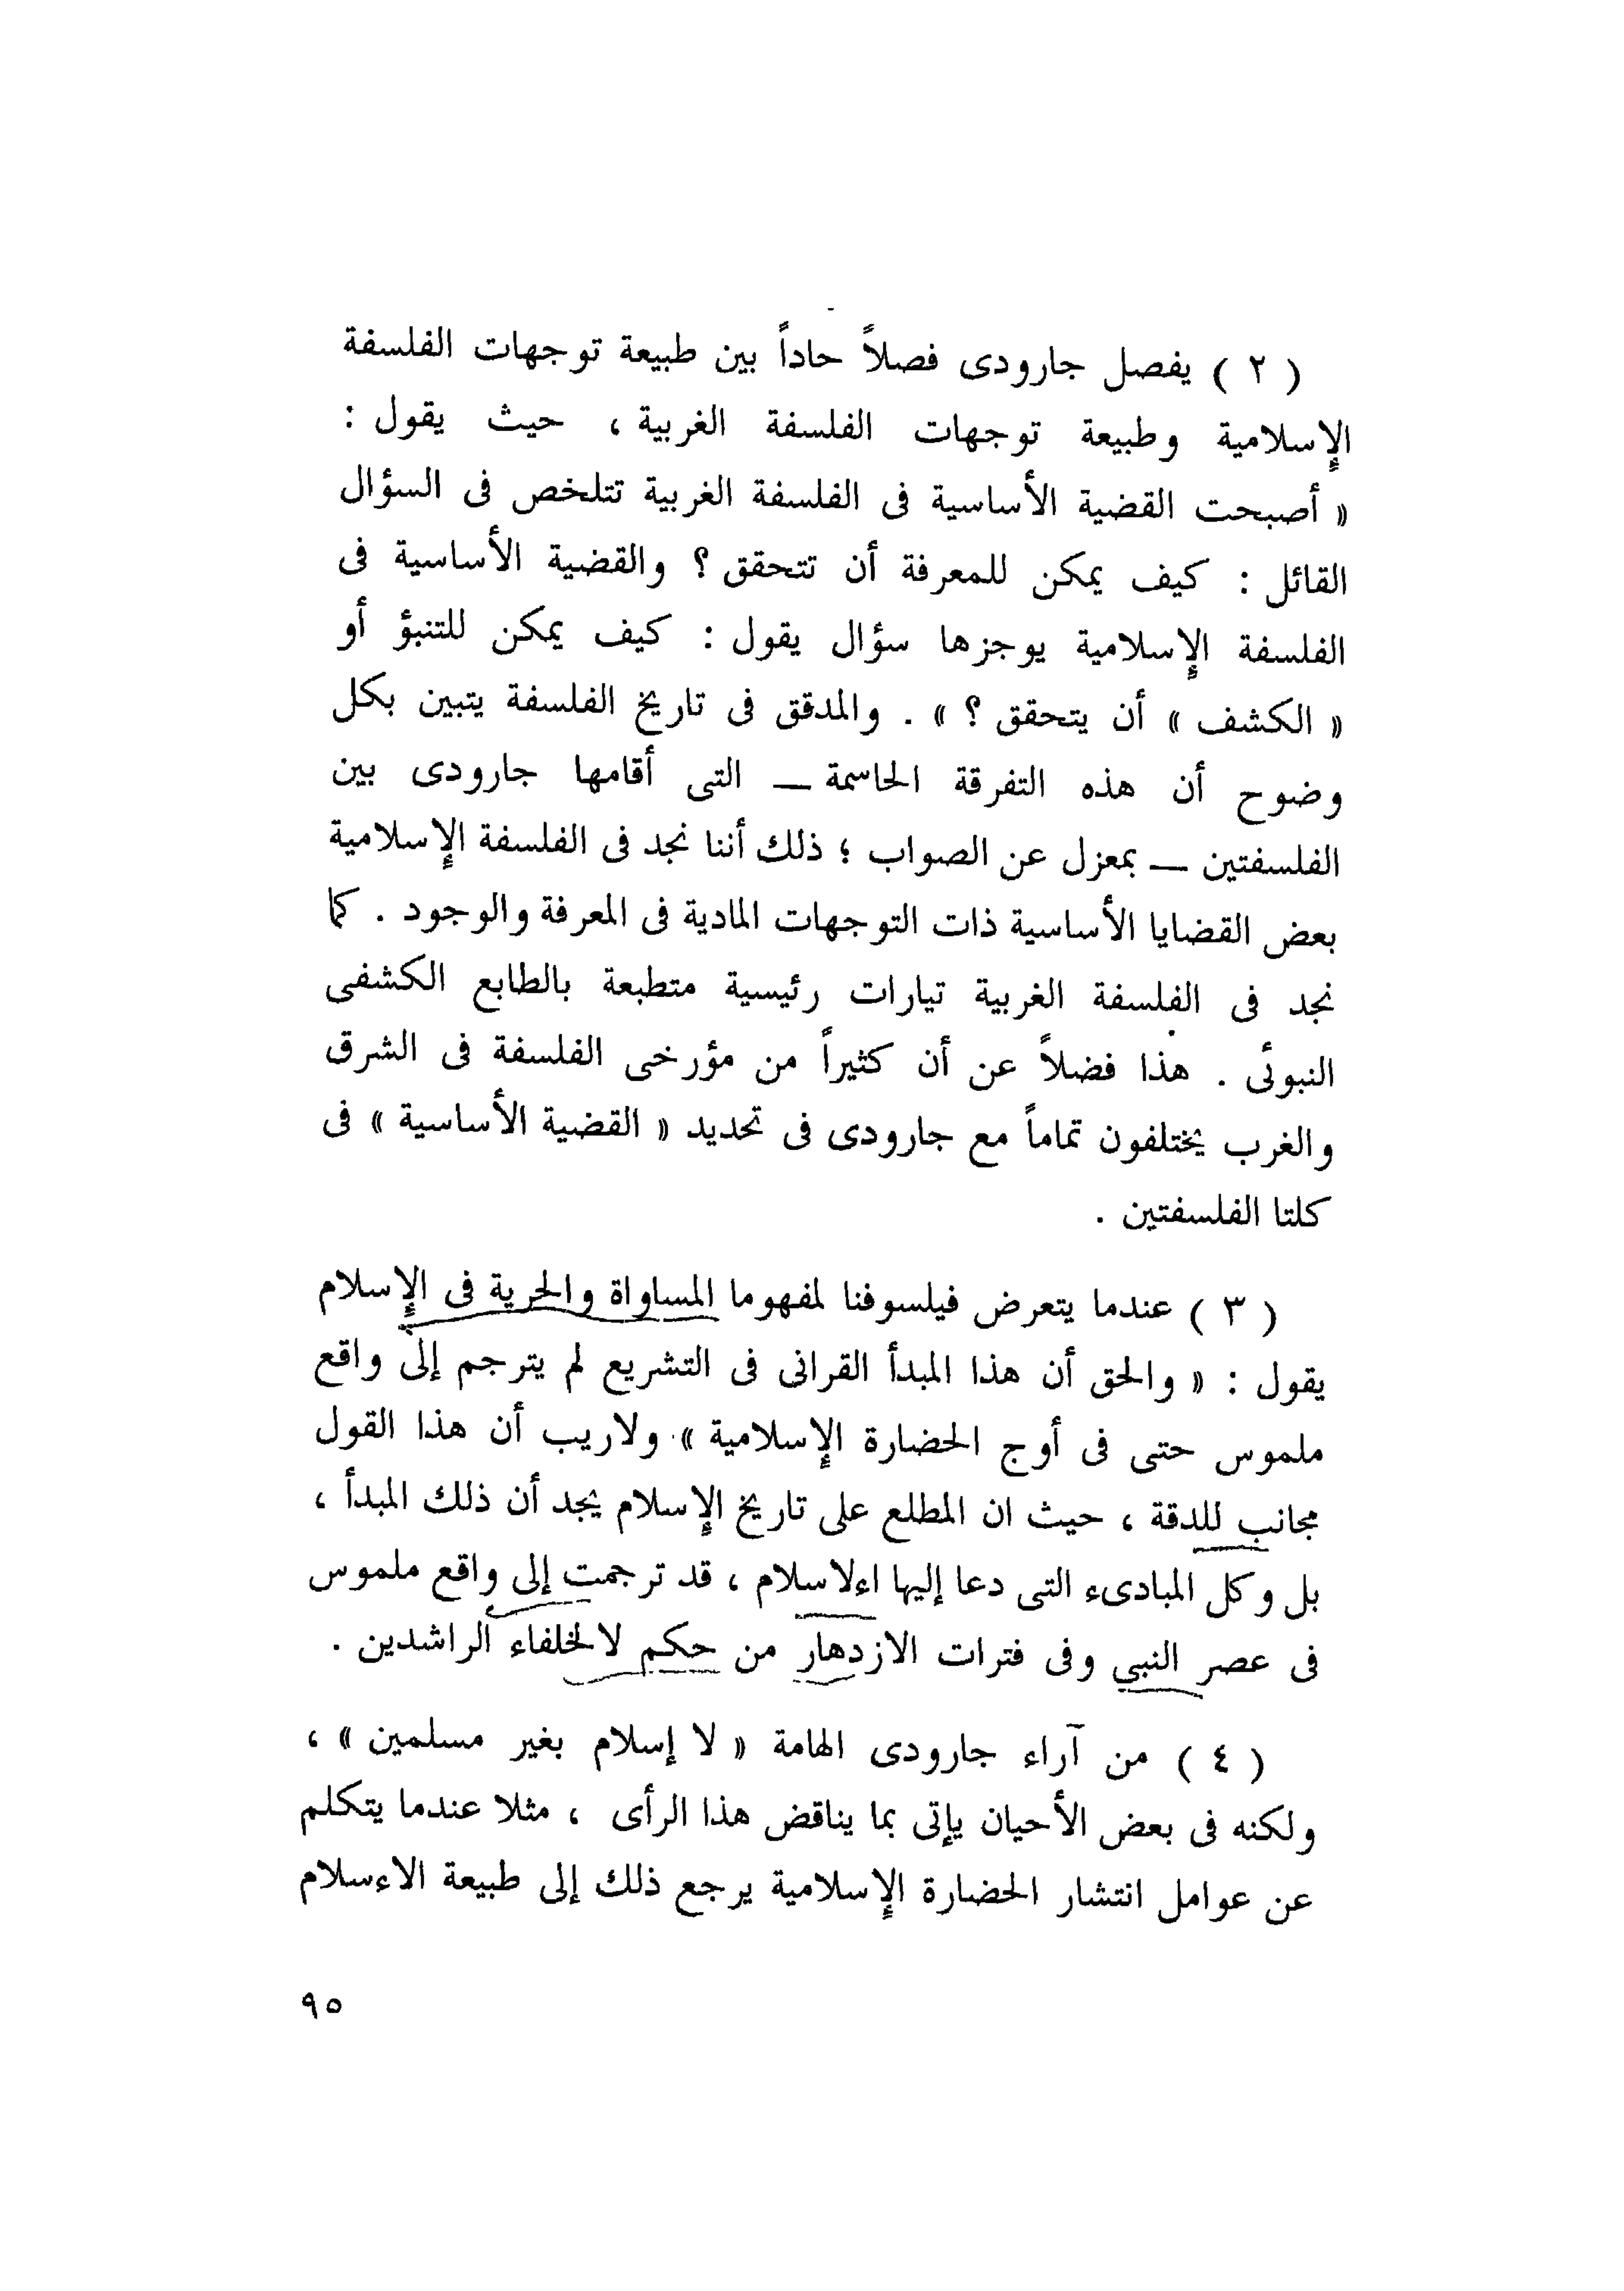 ( ٢ ) يفصل جارودى فصلاً حاداً بين طبيعة توجهات الفلسفة
الإسلامية وطبيعة توجهات الفلسفة الغربية ، حيث يقول :
« أصبحت القضية الأساسية فى الفلسفة الغربية تتلخص فى السؤال
القائل : كيف يمكن للمعرفة أن تتحقق ؟ والقضية الأساسية فى
الفلسفة الإسلامية يوجزها سؤال يقول : كيف يمكن للتنبؤ أو
« الكشف » أن يتحقق ؟ » . والمدقق فى تاريخ الفلسفة يتبين بكل
وضوح أن هذه التفرقة الحاسمة — التى أقامها جارودى بين
الفلسفتين — بمعزل عن الصواب ؛ ذلك أننا نجد فى الفلسفة الإسلامية
بعض القضايا الأساسية ذات التوجهات المادية فى المعرفة والوجود . كما
نجد فى الفلسفة الغربية تيارات رئيسية متطبعة بالطابع الكشفى
النبوئى . هذا فضلاً عن أن كثيراً من مؤرخى الفلسفة فى الشرق
والغرب يختلفون تماماً مع جارودى فى تحديد « القضية الأساسية » فى
كلتا الفلسفتين .
( ٣ ) عندما يتعرض فيلسوفنا لمفهوما المساواة والحرية فى الإسلام
يقول : « والحق أن هذا المبدأ القرانى فى التشريع لم يترجم إلى واقع
ملموس حتى فى أوج الحضارة الإسلامية » ولاريب أن هذا القول
مجانب للدقة ، حيث ان المطلع على تاريخ الإسلام يجد أن ذلك المبدأ ،
بل وكل المبادىء التى دعا إليها اءلاسلام ، قد ترجمت إلى واقع ملموس
فى عصر النبي وفى فترات الازدهار من حكم لالخلفاء الراشدين .
( ٤ ) من آراء جارودى الهامة « لا إسلام بغير مسلمين » ،
ولكنه فى بعض الأحيان يإتى بما يناقض هذا الرأى ، مثلا عندما يتكلم
عن عوامل انتشار الحضارة الإسلامية يرجع ذلك إلى طبيعة الاءسلام
٩٥